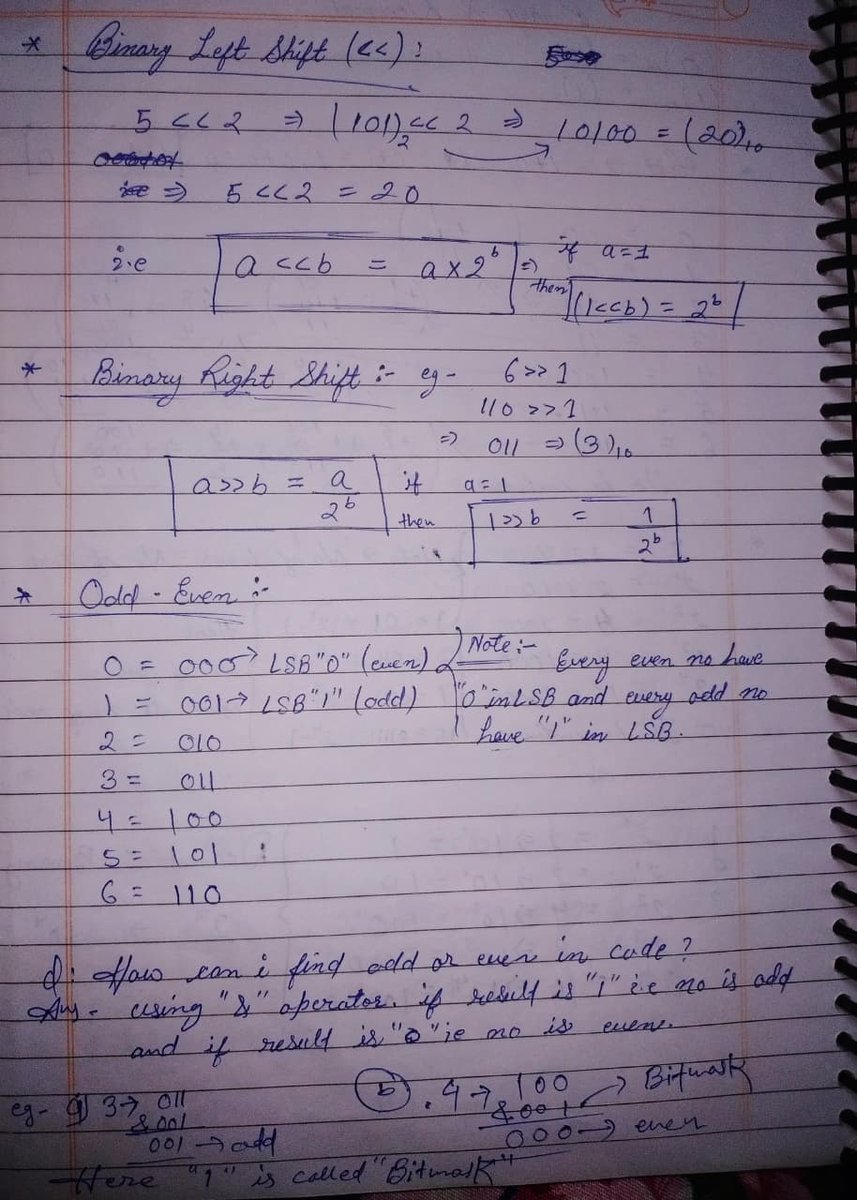 * Binary Left Shift (<<) :
5 << 2 ⇒ (101)₂ << 2 ⇒ 10100 = (20)₁₀
⇒ 5 << 2 = 20
i.e a <<b = a x 2ᵇ ⇒ if a=1
then (1<<b) = 2ᵇ
* Binary Right Shift :- eg - 6 >> 1
110 >> 1
⇒ 011 ⇒ (3)₁₀
a>>b = a/2ᵇ if a=1
then 1>>b = 1/2ᵇ
* Odd - Even :-
0 = 000 → LSB "0" (even) Note :- Every even no have
1 = 001 → LSB "1" (odd) "0" in LSB and every odd no
2 = 010 have "1" in LSB.
3 = 011
4 = 100
5 = 101
6 = 110
Q: How can i find odd or even in code ?
Ans - using "&" operator. if result is "1" i.e no is odd
and if result is "0" ie no is even.
eg- a) 3 → 011 (b) . 4 → 100 → Bitmask
& 001 & 001
001 → odd 000 → even
Here "1" is called "Bitmask"